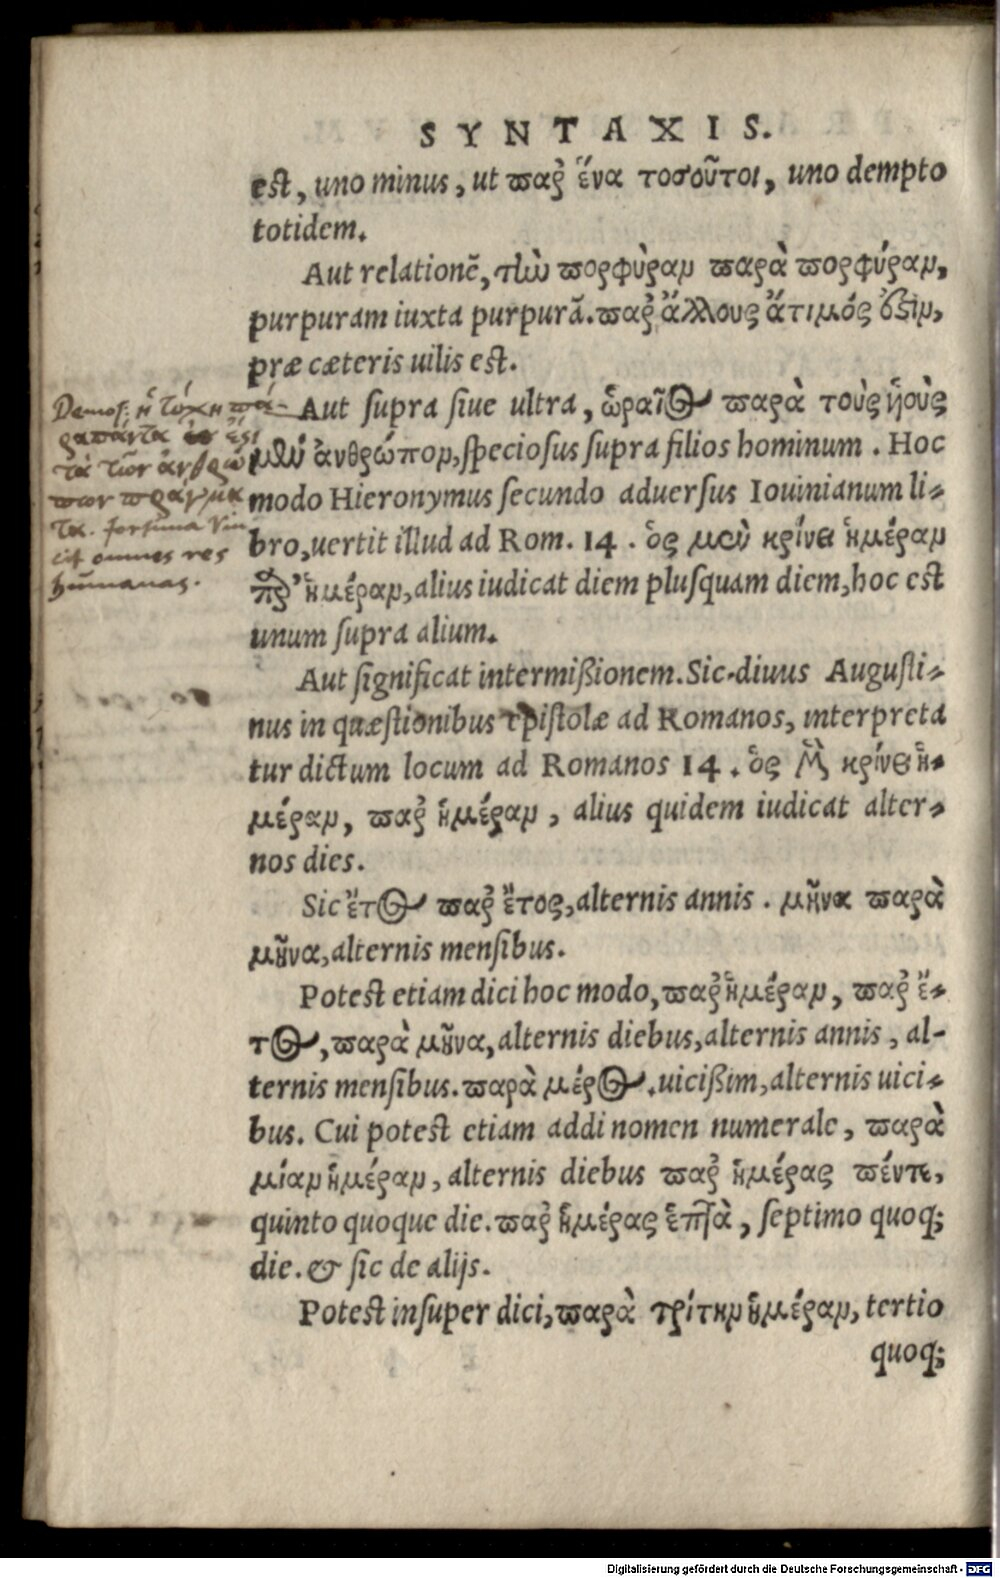 SYNTAXIS.
est, uno minus, ut παρ' ἕνα τοσοῦτοι, uno dempto
totidem.
Aut relationē, τὼ πορφύραν παρὰ πορφύραν,
purpuram iuxta purpurā. παρ' ἄλλους ἄτιμός ὅξιν,
præ cæteris uilis est.
Aut supra siue ultra, ὡραῖος παρὰ τοὺς ἡοὺς
ἀνθρώπον, speciosus supra filios hominum. Hoc
modo Hieronymus secundo aduersus Iouinianum li-
bro, uertit illud ad Rom. 14. ὃς μεν κρίνει ἡμέραν
παρ' ἡμέραν, alius iudicat diem plusquam diem, hoc est
unum supra alium.
Aut significat intermißionem. Sic diuus Augusti-
nus in quæstionibus epistolæ ad Romanos, interpreta
tur dictum locum ad Romanos 14. ὃς μὲν κρίνει ἡ-
μέραν, παρ' ἡμέραν, alius quidem iudicat alter-
nos dies.
Sic ἔτος παρ' ἔτος, alternis annis. μῆνα παρὰ
μῆνα, alternis mensibus.
Potest etiam dici hoc modo, παρ' ἡμέραν, παρ' ἔ-
τος, παρὰ μῆνα, alternis diebus, alternis annis, al-
ternis mensibus. παρὰ μέρος. uicißim, alternis uici-
bus. Cui potest etiam addi nomen numerale, παρὰ
μίαν ἡμέραν, alternis diebus παρ' ἡμέρας πέντε,
quinto quoque die. παρ' ἡμέρας ἑπτὰ, septimo quoq;
die. & sic de alijs.
Potest insuper dici, παρὰ τρίτην ἡμέραν, tertio
quoq;
Demos: ἡ τύχη πά-
ρα πάντα ἐστὶ
τὰ τῶν ἀνθρώ
πων πράγμα
τα. fortuna vin
cit omnes res
humanas.
Digitalisierung gefördert durch die Deutsche Forschungsgemeinschaft - DFG